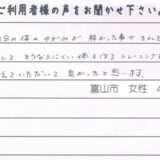 ご利用者様の声をお聞かせ下さい。
自分の体のゆがみが解った事や、それ
してそうなりにくい体を作るトレーニングも
えていただいて良かったと思います。
富山市 女性 4